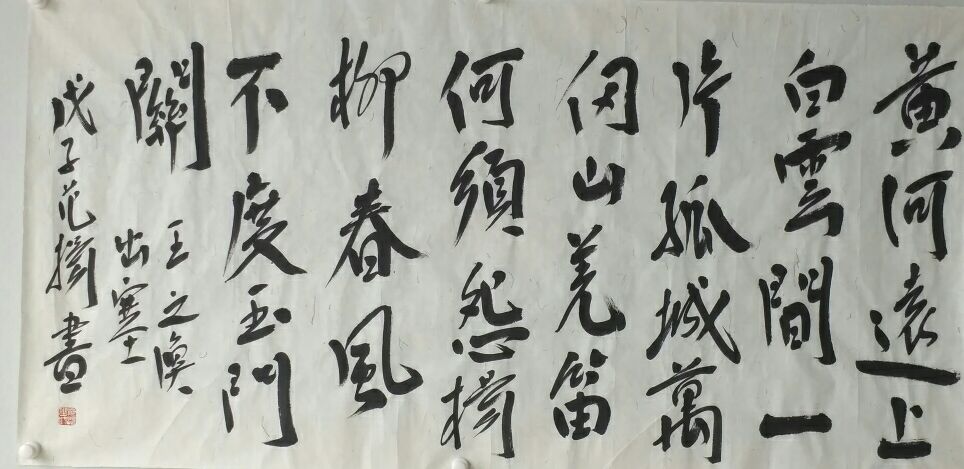 黄河遠上
白雲間一
片孤城萬
仞山羌笛
何須怨楊
柳春風
不度玉門
關
王之渙
出塞
戊子范楊書